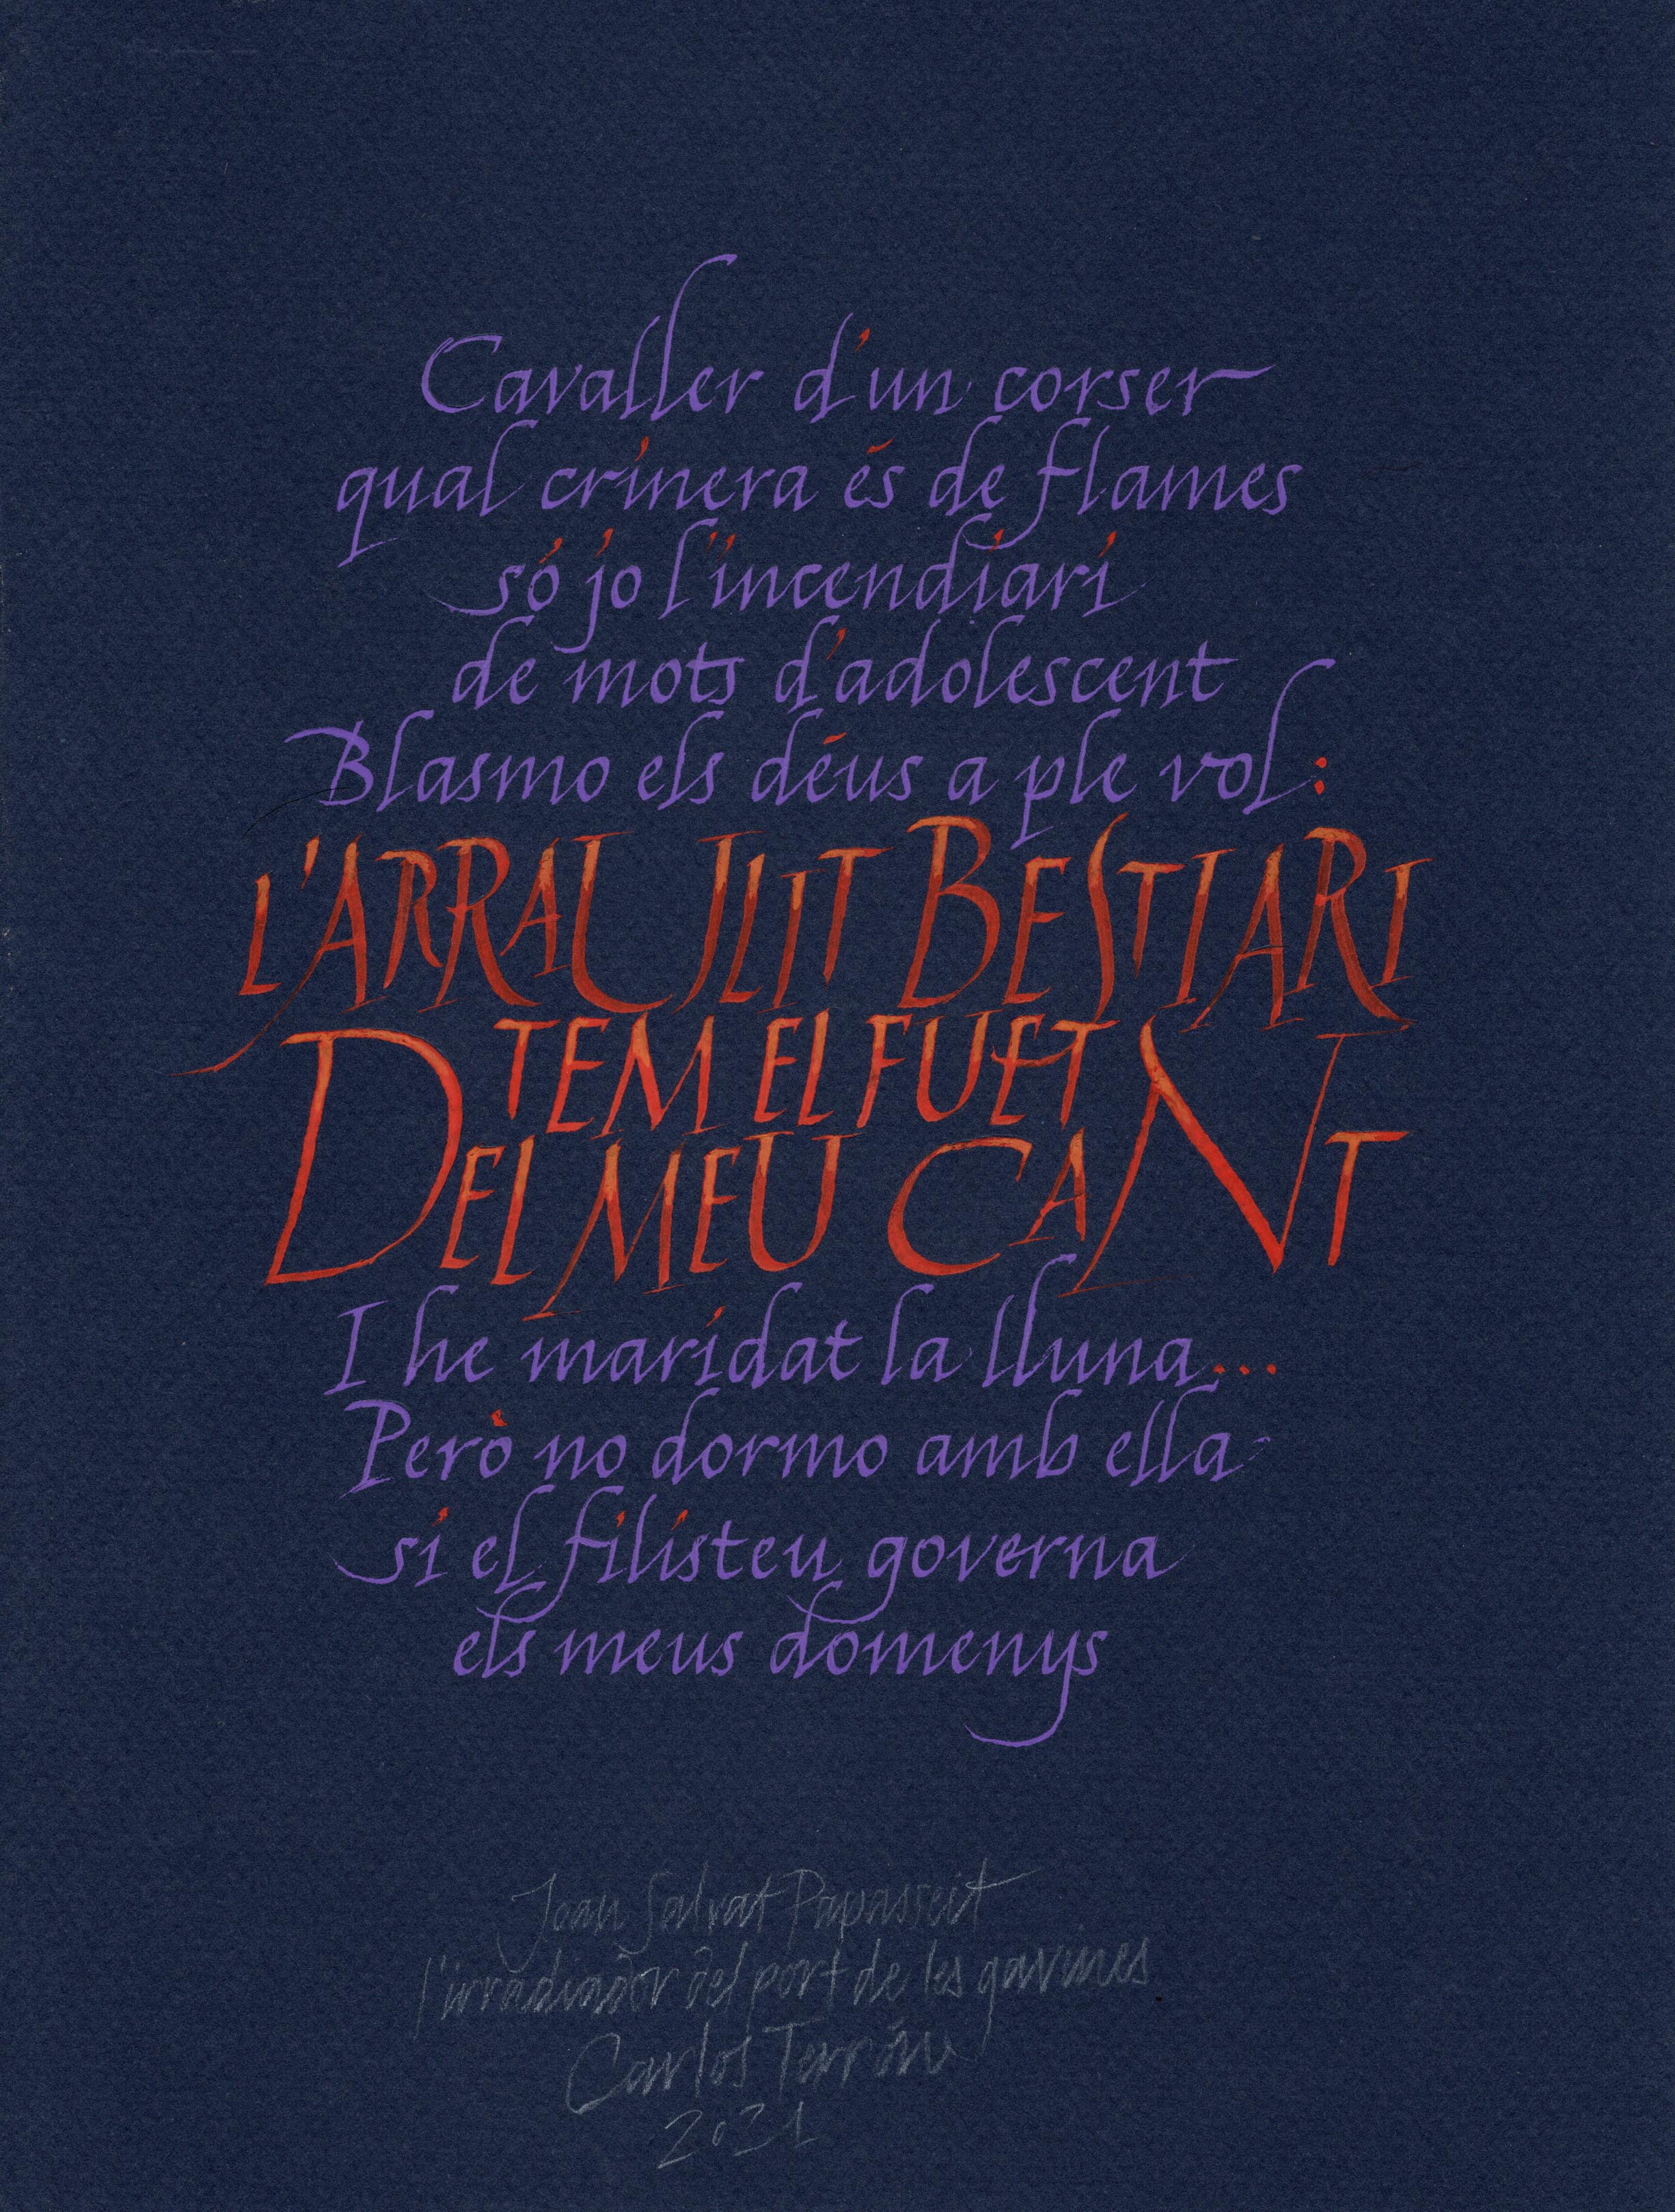 Cavaller d'un corser
qual crinera és de flames
só jo l'incendiari
de mots d'adolescent
Blasmo els déus a ple vol:
L'ARRAULIT BESTIARI
TEM EL FUET
DEL MEU CANT
I he maridat la lluna...
Però no dormo amb ella
si el filisteu governa
els meus domenys
Joan Salvat Papasseit
l'irradiador del port de les gavines
Carlos Terrón
2021